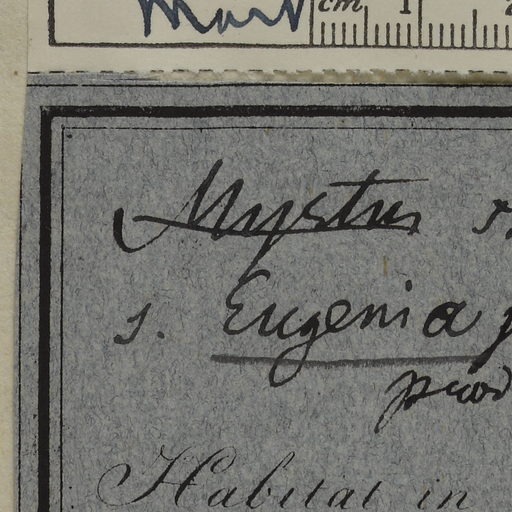 Mart cm 1
Myrtus
s. Eugenia
prod
Habitat in